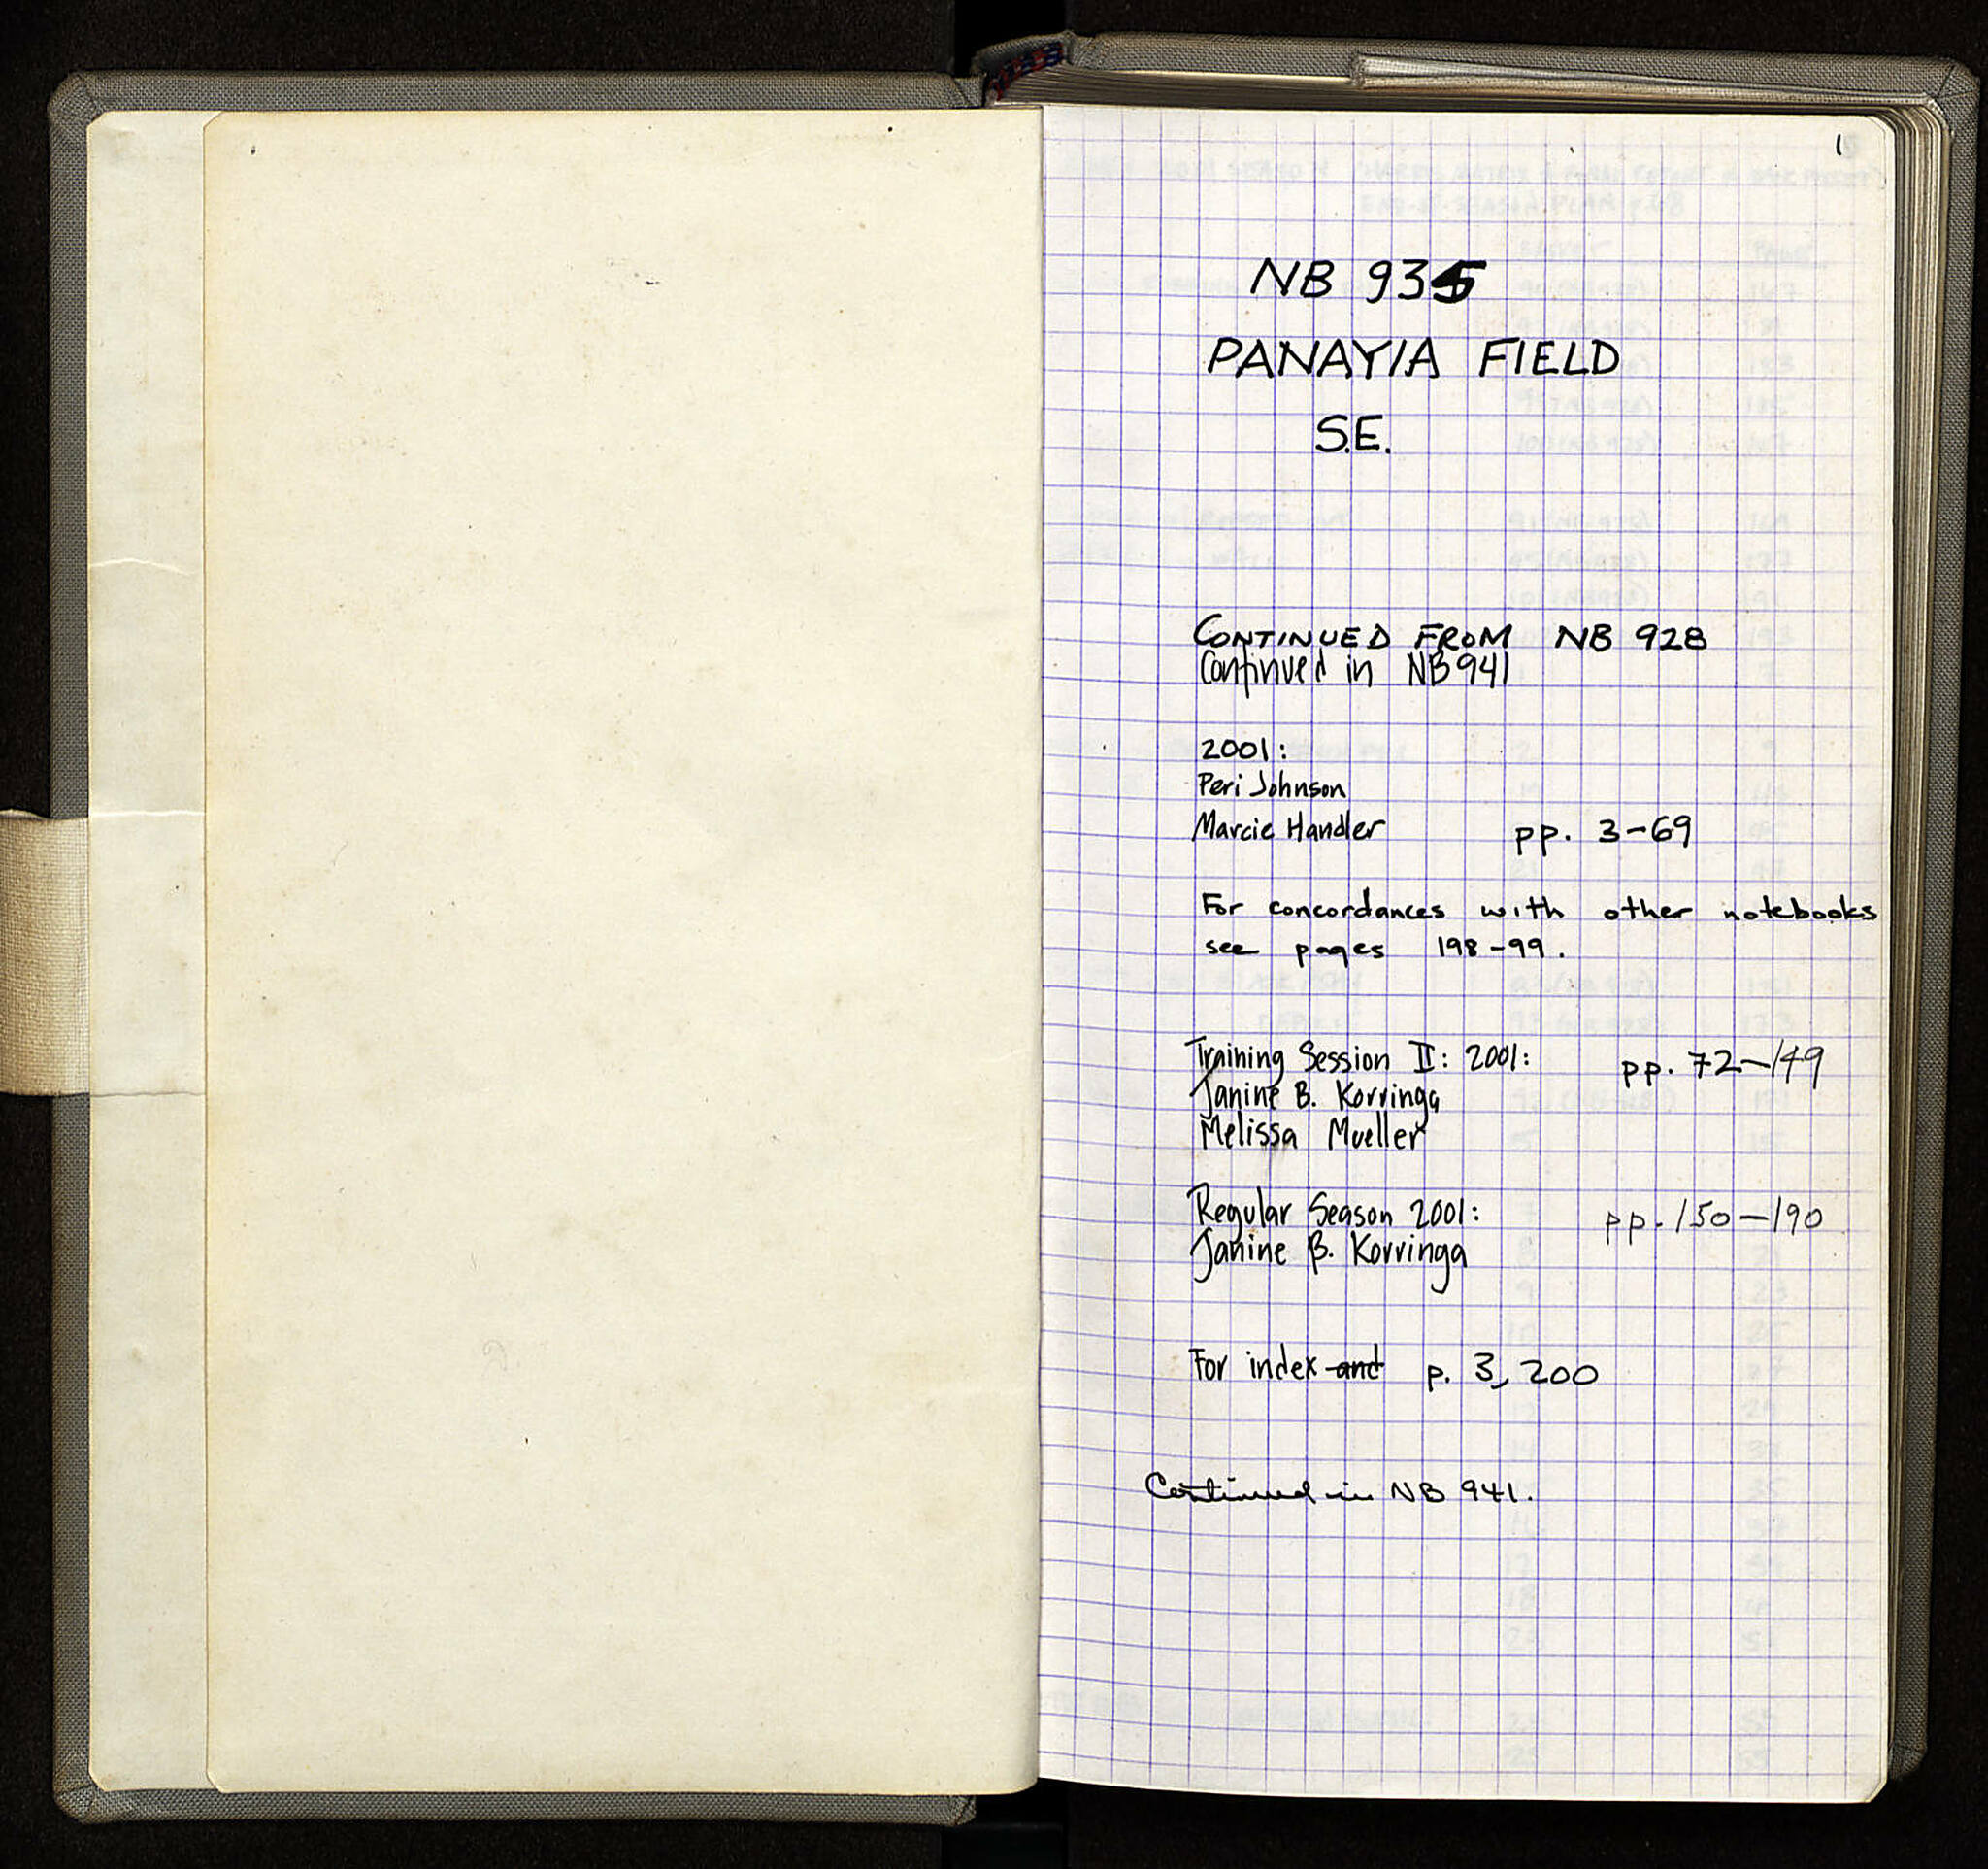 1
NB 935
PANAYIA FIELD
S.E.
CONTINUED FROM NB 928
Continued in NB941
2001:
Peri Johnson
Marcie Handler pp. 3-69
For concordances with other notebooks
see pages 198-99.
Training Session II: 2001: pp. 72-149
Janine B. Korringa
Melissa Mueller
Regular Season 2001: pp. 150-190
Janine B. Korringa
For index and p. 3, 200
Continued in NB 941.